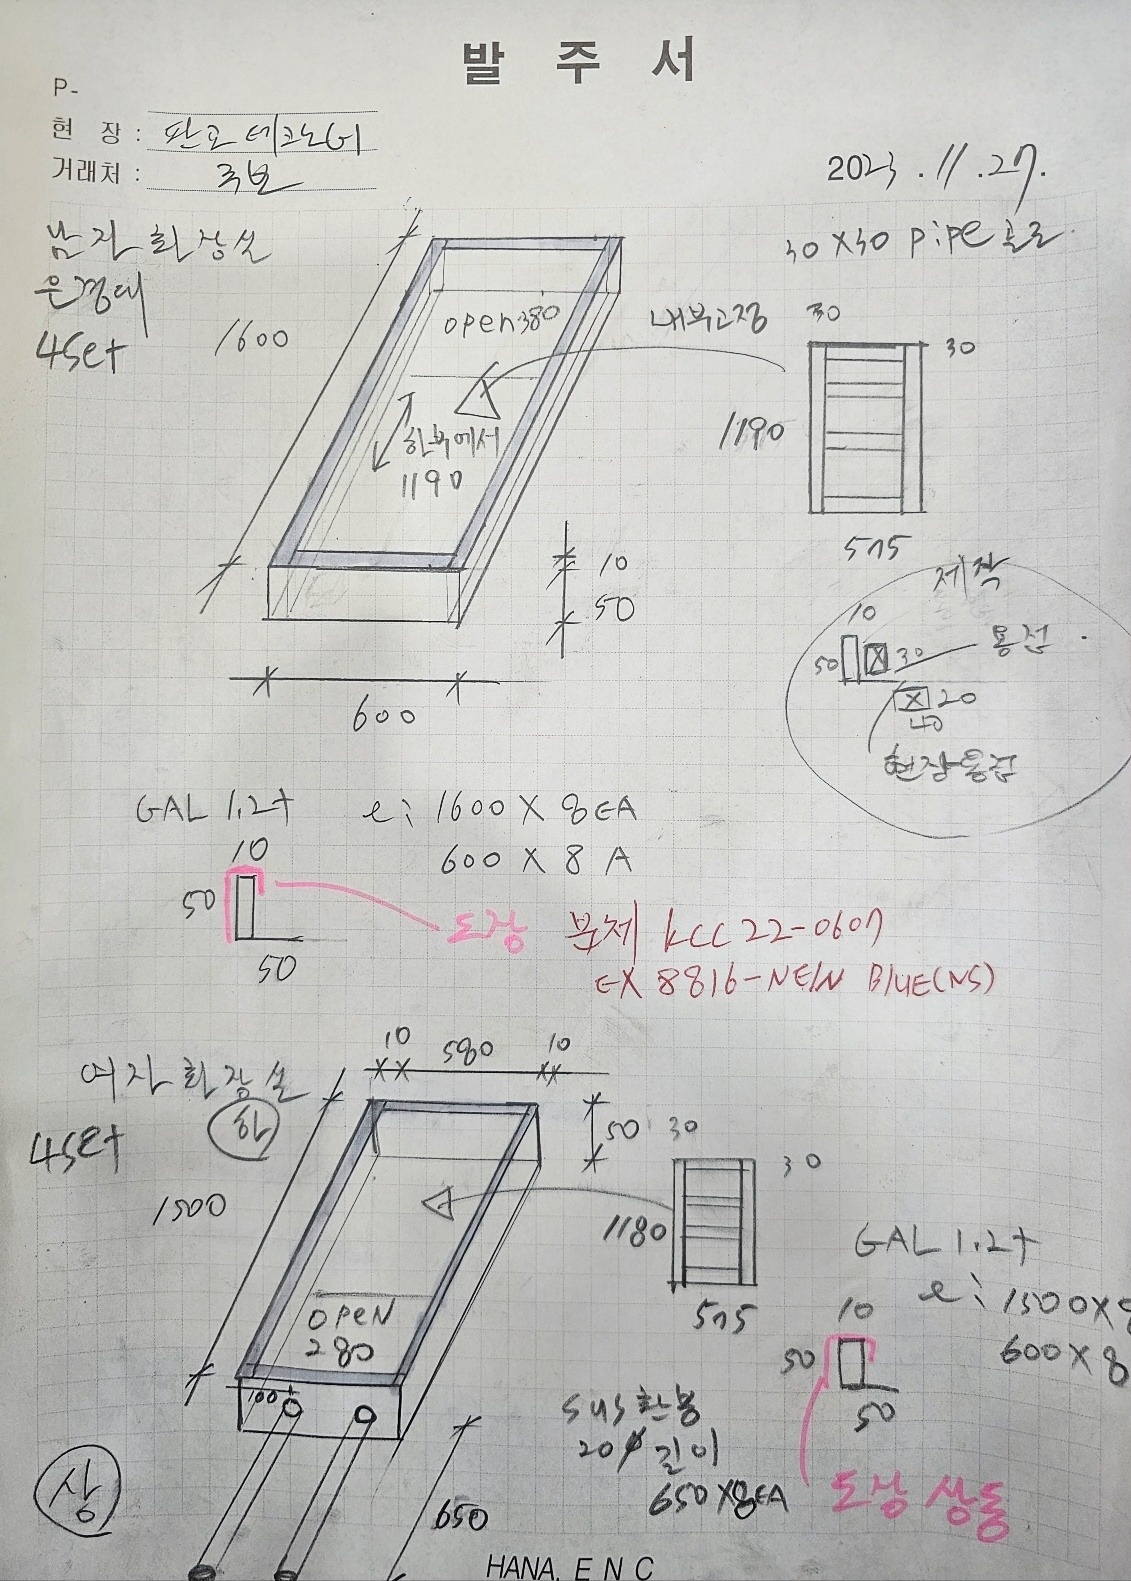 발 주 서
P-
현 장 : 판교 테크노
거래처 : 국보
2023 . 11 . 27.
남자 화장실
은경대
4Set
30 X30 pipe
1600
open 380
내부고정
30
30
1190
하부에서
1190
575
10
50
600
제작
10
50
30
용접
20
40
현장용접
GAL 1.2t
ℓ : 1600 X 8EA
600 X 8 A
10
50
50
도장
분체 KCC 22-0607
EX 8816-NEIN BlUE(NS)
여자 화장실
하
4Set
10 580 10
50
30
30
1500
1180
575
OPEN
280
100
GAL 1.2t
ℓ : 1500X8
600 X 8
10
50
50
SUS 환봉
20ϕ 길이
650 X8EA
도장 상동
상
650
HANA. E N C